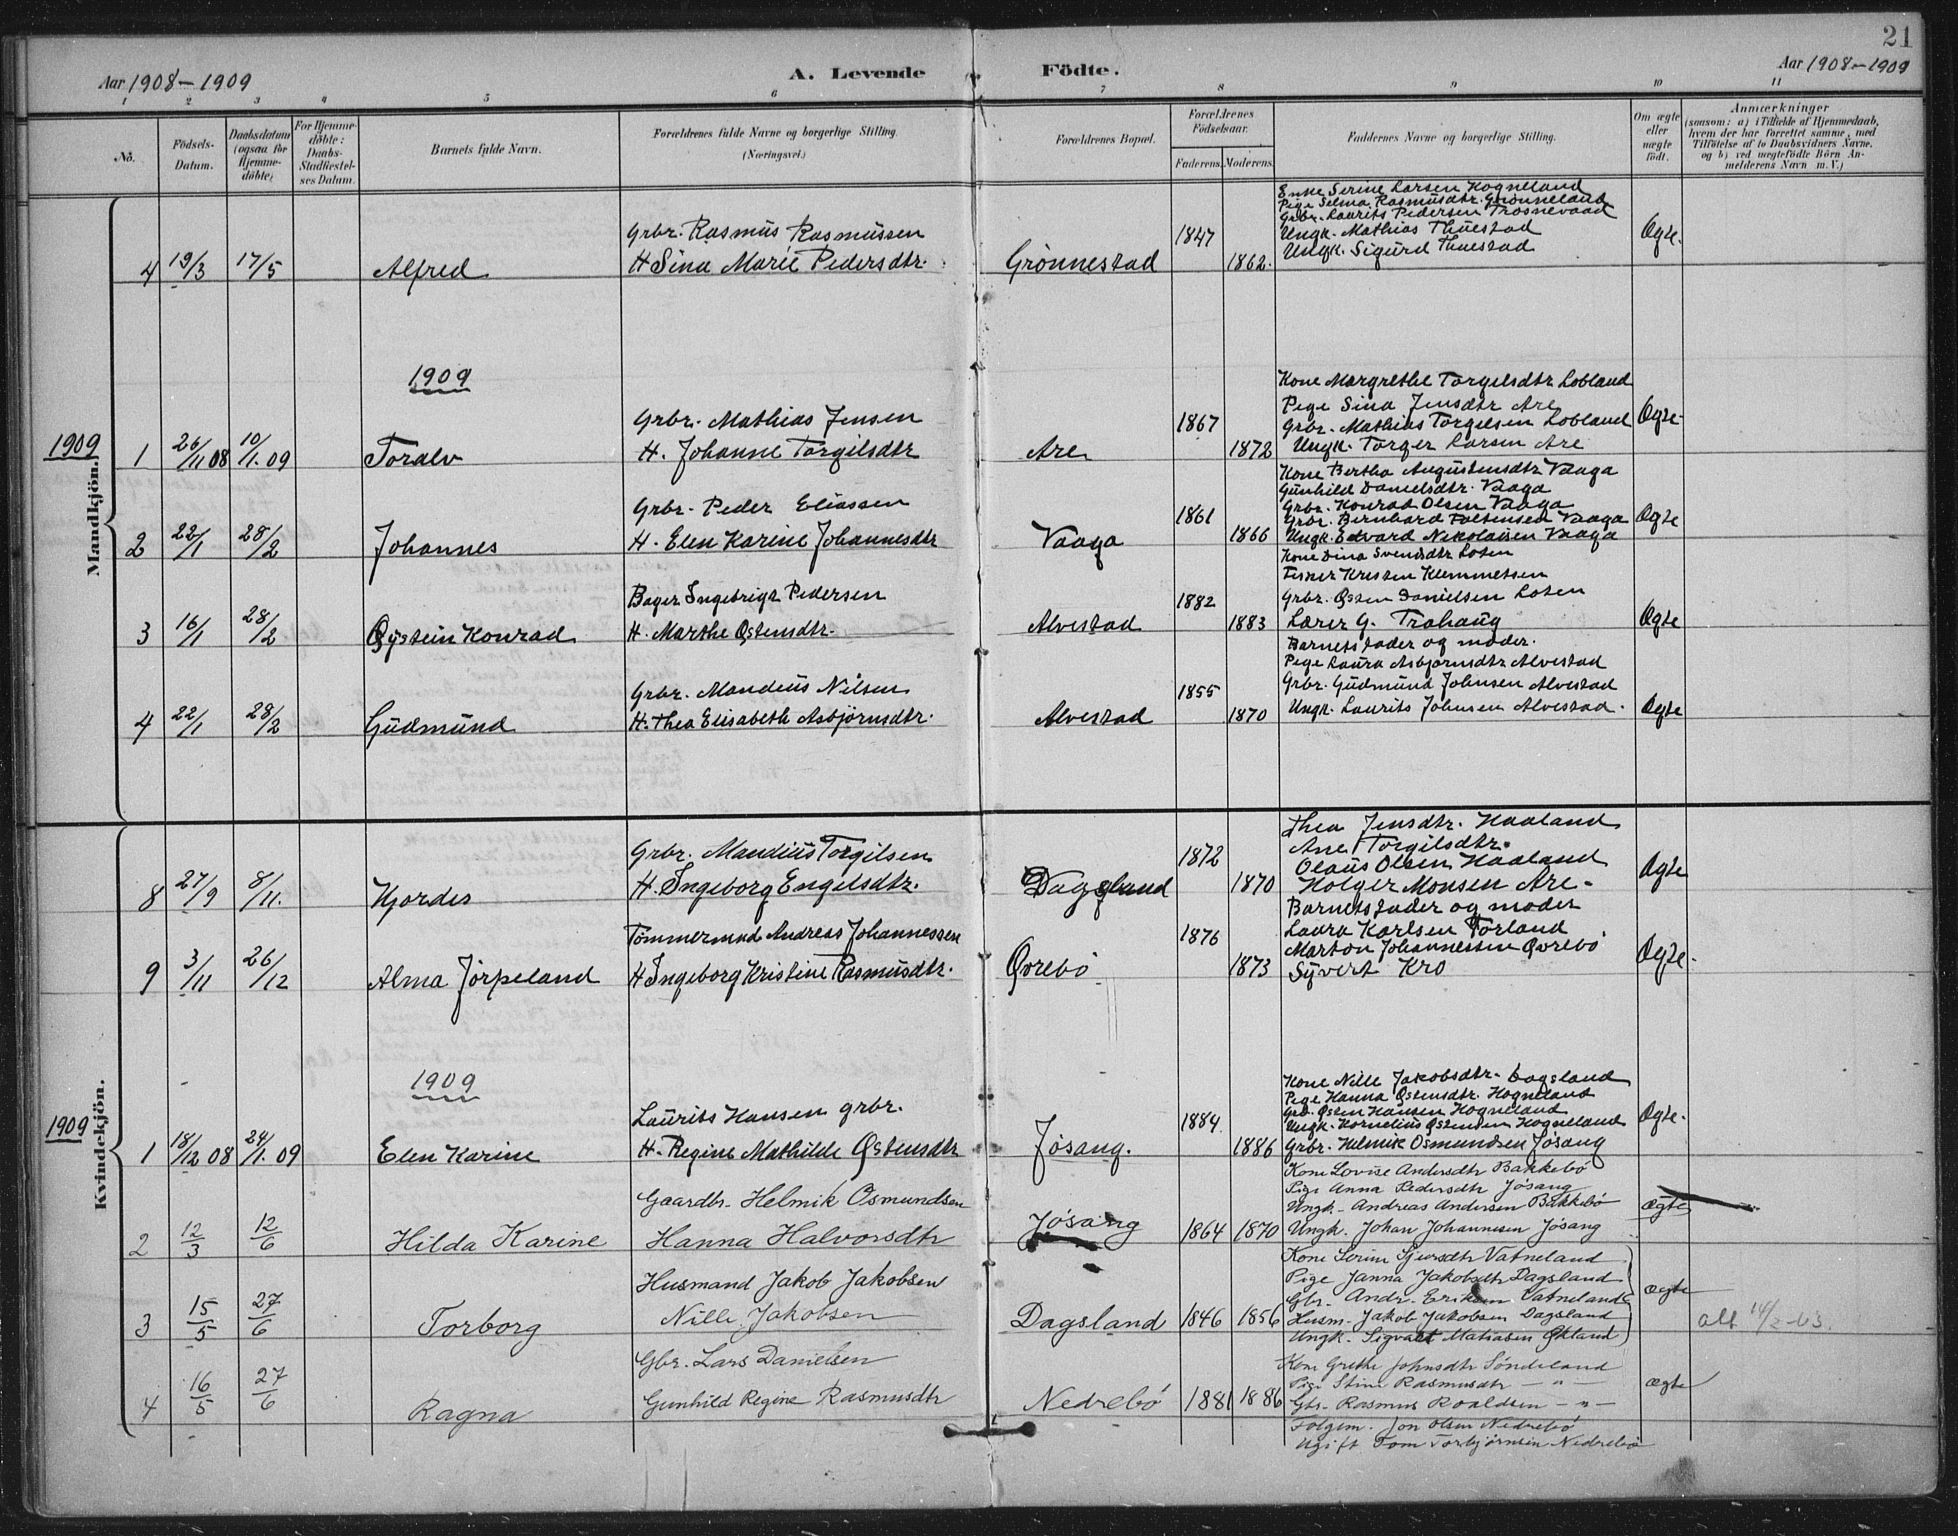 21
Aar 1908-1909
A. Levende Födte.
Aar 1908-1909
1 2 3 4 5 6 7 8 9 10 11
No.
Födsels-Datum.
Daabsdatum (ogsaa for Hjemme-döbte)
For Hjemme-döbte: Daabs-Stadfæstel-ses Datum.
Barnets fulde Navn.
Forældrenes fulde Navne og borgerlige Stilling. (Næringsvei.)
Forældrenes Bopæl.
Forældrenes Födselsaar.
Faderens. Moderens.
Faddernes Navne og borgerlige Stilling.
Om ægte eller uægte födt.
Anmærkninger
(saasom: a) i Tilfælde af Hjemmedaab, hvem der har forrettet samme, med Tilföielse af to Daabsvidners Navne, og b) ved uægtefödte Börn Anmelderens Navn m. V.)
Mandkjön.
Enke Serine Larsen Hogneland
Pige Selma Rasmusdtr. Grønneland
Grbr. Rasmus Rasmussen 1847 Grbr. Laurits Pedersen Trosnevaad Ægte.
Ungk. Mathias Thuestad
4 19/3 17/5 Alfred H Sina Marie Pedersdtr. Grønnestad 1862. Ungk. Sigurd Thuestad
1909
Kone Margrethe Torgilsdtr Lobland
Pige Sina Jensdtr Are
Grbr. Mathias Jensen 1867 Grbr. Mathias Torgilsen Lobland Ægte
1909 1 26/11 08 10/1. 09 Toralv H. Johanne Torgilsdtr Are 1872 Ungk. Torger Larsen Are
Kone Bertha Augustensdtr Vaaga
Gunhild Danielsdtr. Vaaga
Grbr. Peder Eliassen 1861 Grbr. Konrad Olsen Vaaga
Grbr. Bernhard Vaaga Ægte
2 22/1 28/2 Johannes H. Elen Karine Johannesdtr Vaaga 1866 Ungk. Edvard Nikolaisen Vaaga
Kone Dina Svendsdtr Losen
Fisker Kristen Klemmetsen
Bager Ingebrigt Pedersen 1882 Grbr. Østen Danielsen Losen
3 16/1 28/2 Øystein Konrad H. Marthe Østensdtr. Alvestad 1883 Lærer G. Trohaug Ægte
Barnets fader og moder.
Pige Laura Asbjørnsdtr Alvestad
Grbr. Mandius Nilsen 1855 Grbr. Gudmund Johnsen Alvestad
4 22/1 28/2 Gudmund H. Thea Elisabeth Asbjørnsdtr. Alvestad 1870 Ungk. Laurits Johnsen Alvestad. Ægte
Kvindekjön.
Thea Jensdtr. Haaland
Ane Torgilsdtr.
Grbr. Mandius Torgilsen 1872 Olaus Olsen Haaland Ægte
8 27/9 8/11. Hjordis H. Ingeborg Engelsdtr. Dagsland 1870 Holger Monsen Are.
Barnets fader og moder
Tømmermnd Andreas Johannessen 1876 Laura Karlsen Førland
Marton Johannessen Øvrebø Ægte.
9 3/11 26/12 Alma Jörpeland H Ingeborg Kristine Rasmusdtr. Øvrebø 1873 Syvert Kro
1909
Kone Nille Jakobsdtr. Dagsland
Pige Hanna Østensdtr. Hogneland
Laurits Hansen grbr. 1884. Grb. Østen Hansen Hogneland Ægte.
Ungk. Kornelius Østensen Hogneland
1909 1 18/12 08 24/1. 09 Elen Karine H. Regine Mathilde Østensdtr Jøsang. 1886 Grbr. Helmik Osmundsen Jøsang
Kone Lovise Andersdtr Bakkebø
Pige Anna Pedersdtr Jøsang
Gaardbr. Helmik Osmundsen Ungk. Andreas Andersen Bakkebø ægte
2 12/3 12/6 Hilda Karine Hanna Halvorsdtr Jøsang 1864 1870 Ungk. Johan Johannesen Jøsang
Kone Serine Sjursdtr Vatneland
Husmand Jakob Jakobsen Pige Janna Jakobsdtr Dagsland
Gbr. Andr. Eriksen Vatneland ægte
3 15/5 27/6 Torborg Nille Jakobsen Dagsland 1846 1856 Husm. Jakob Jakobsen Dagsland
Ungk. Sigvart Matiasen Økland
Gbr. Lars Danielsen Kone Grethe Johnsdtr Sønderland
Pige Stine Rasmusdtr — " — ægte
4 16/5 27/6 Ragna Gunhild Regine Rasmusdtr Nedrebø 1881 1886 Gbr. Rasmus Roaldsen — " —
Folgem. Jon Olsen Nedrebø
Ugift Tom Torbjørnsen Nedrebø